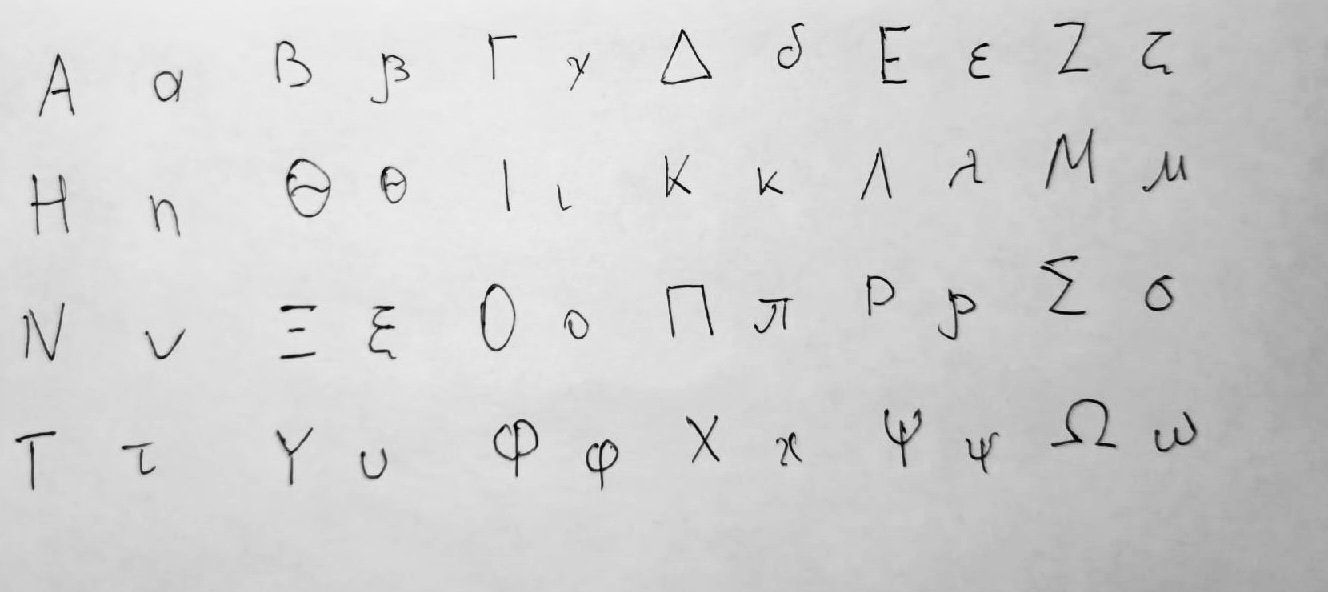 Α α Β β Γ γ Δ δ Ε ε Ζ ζ
Η η Θ θ Ι ι Κ κ Λ λ Μ μ
Ν ν Ξ ξ Ο ο Π π Ρ ρ Σ σ
Τ τ Υ υ Φ φ Χ χ Ψ ψ Ω ω